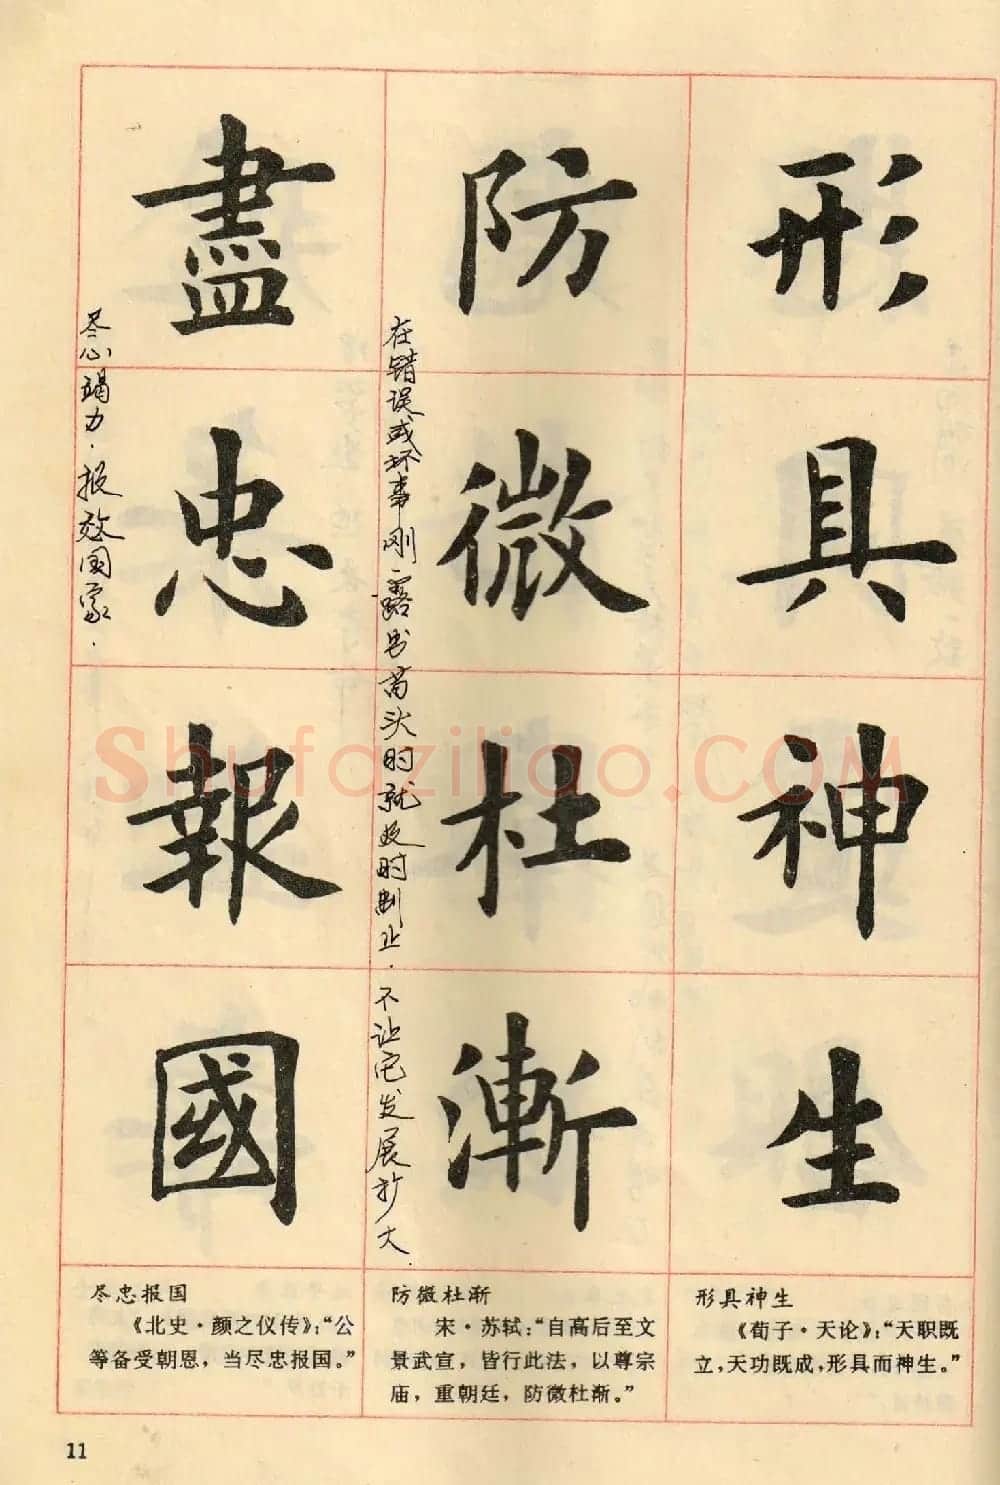 形具神生
防微杜漸
盡忠報國
在错误或坏事刚露出苗头的时就及时制止.不让它发展扩大.
尽心竭力.报效国家.
Shufaziliao.COM
形具神生
《荀子·天论》:“天职既
立,天功既成,形具而神生。”
防微杜渐
宋·苏轼:“自高后至文
景武宣,皆行此法,以尊宗
庙,重朝廷,防微杜渐。”
尽忠报国
《北史·颜之仪传》:“公
等备受朝恩,当尽忠报国。”
11